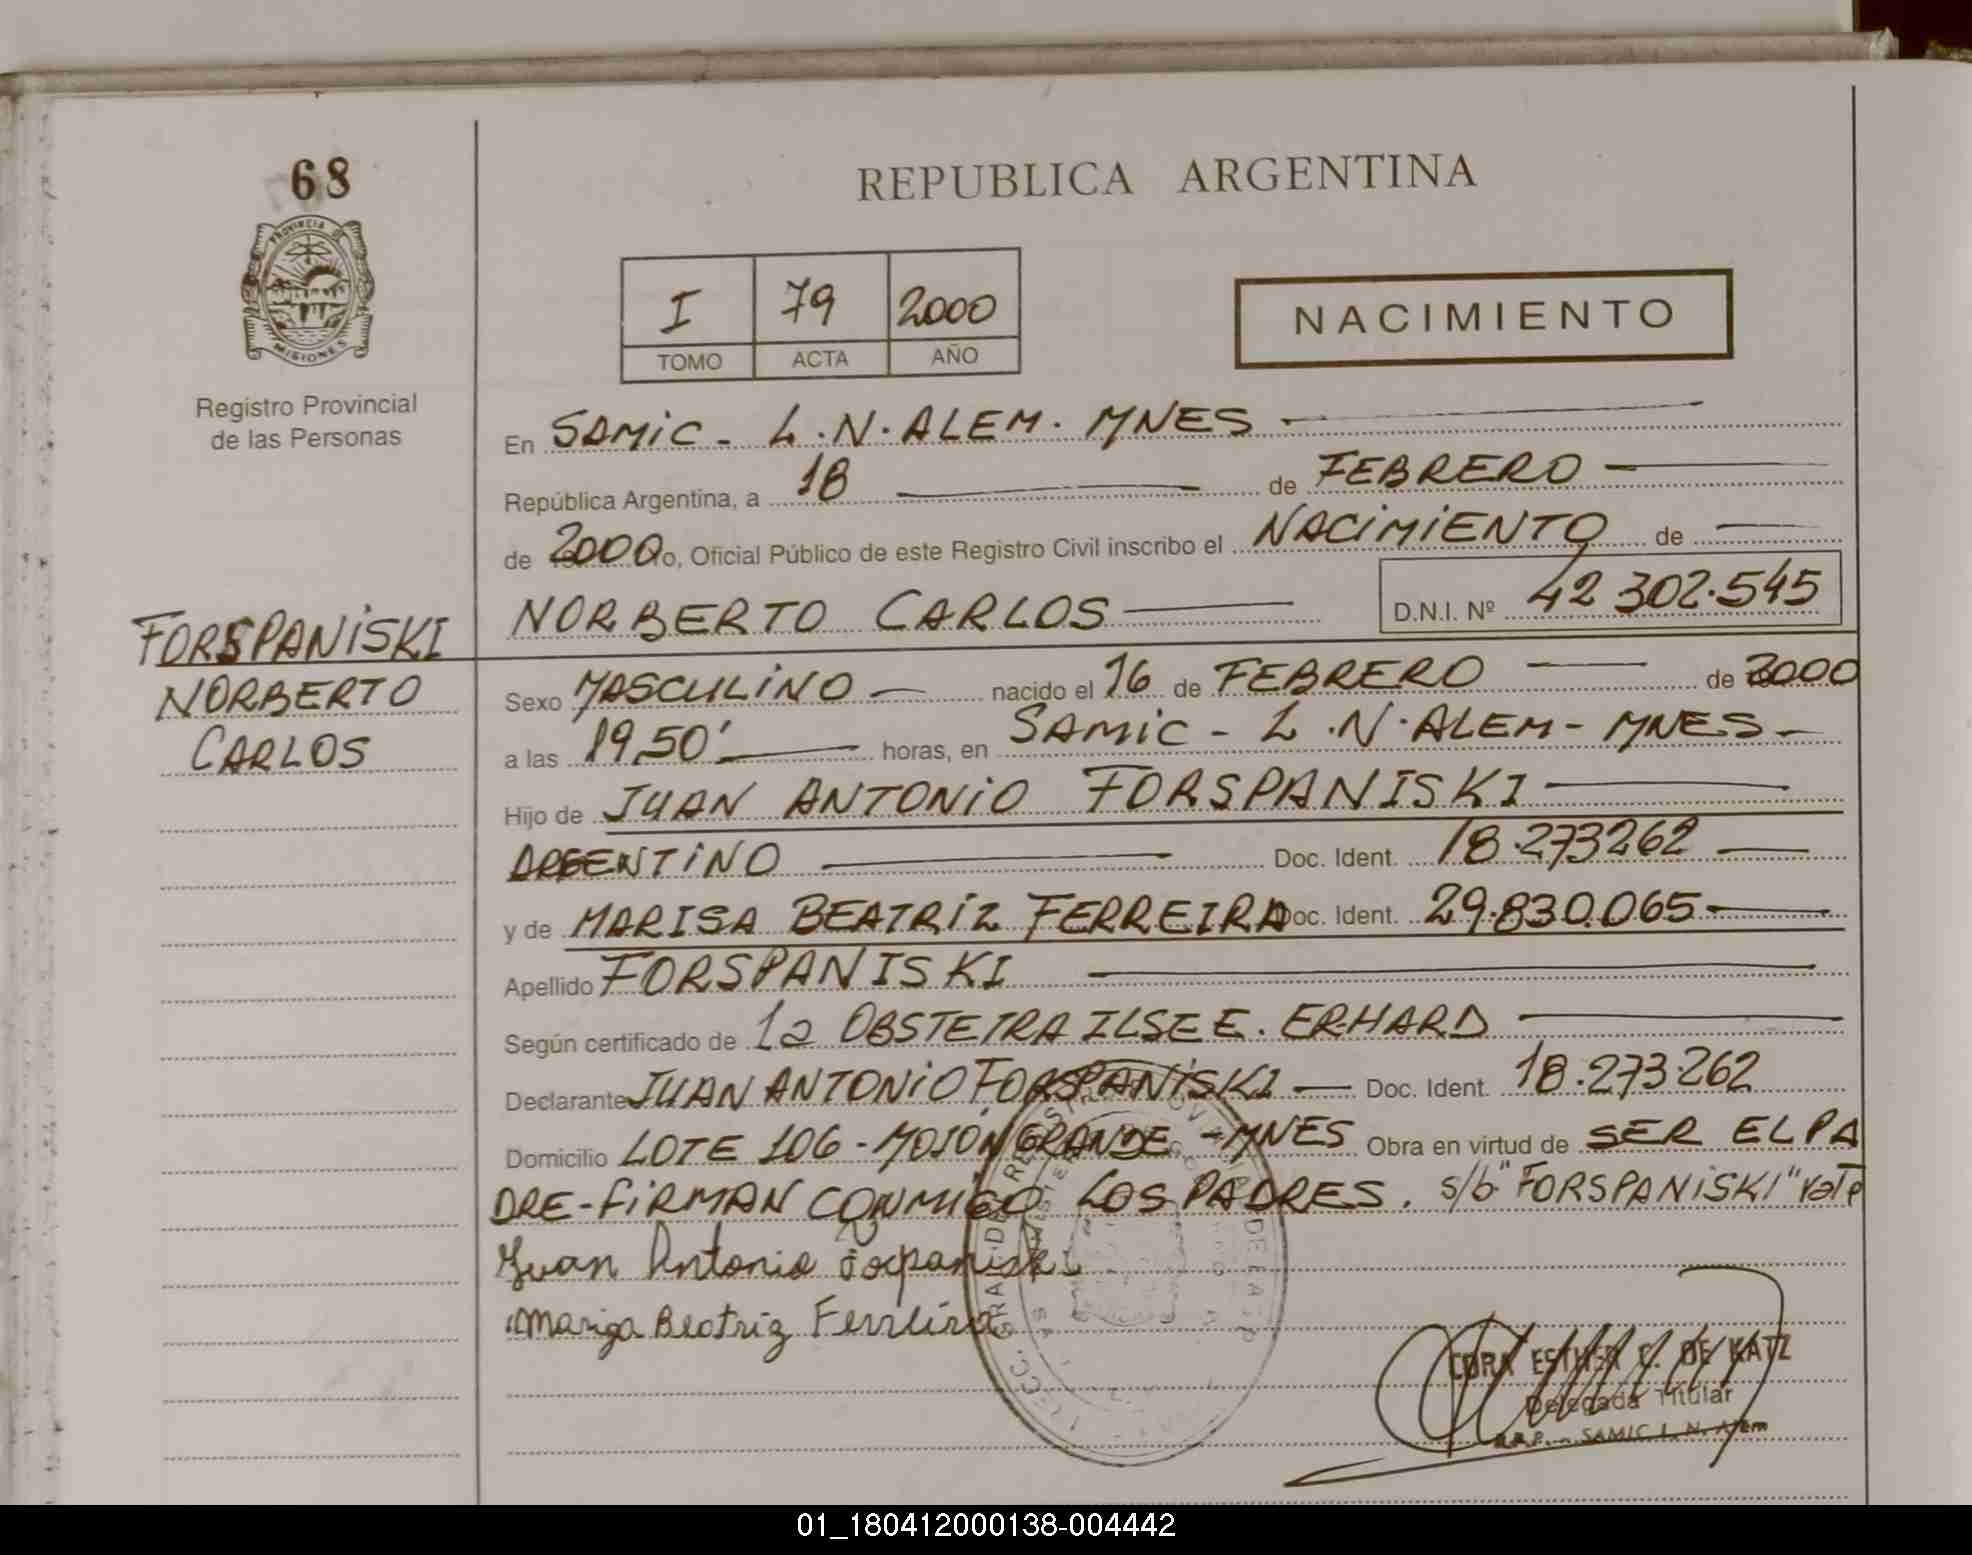 68
PROVINCIA DE
MISIONES
Registro Provincial
de las Personas
FORSPANISKI
NORBERTO
CARLOS
REPUBLICA ARGENTINA
I 79 2000
TOMO ACTA AÑO
NACIMIENTO
En SAMIC - L.N.ALEM. MNES
República Argentina, a 18 de FEBRERO
de 2000 o, Oficial Público de este Registro Civil inscribo el NACIMIENTO de
NORBERTO CARLOS D.N.I. Nº 42 302.545
Sexo MASCULINO nacido el 16 de FEBRERO de 2000
a las 19,50' horas, en SAMIC - L.N.ALEM - MNES -
Hijo de JUAN ANTONIO FORSPANISKI
ARGENTINO Doc. Ident. 18.273262
y de MARISA BEATRIZ FERREIRA Doc. Ident. 29.830.065
Apellido FORSPANISKI
Según certificado de la OBSTETRA ILSE E. ERHARD
Declarante JUAN ANTONIO FORSPANISKI Doc. Ident. 18.273.262
Domicilio LOTE 106 - MOJON GRANDE - MNES Obra en virtud de SER EL PA
DRE - FIRMAN CONMIGO LOS PADRES. s/b "FORSPANISKI" vale
Juan Antonio
Beatriz Ferreira
CORA ESTHER C. DE KATZ
Delegada Titular
R.R.P. - SAMIC L. N. Alem
01_180412000138-004442